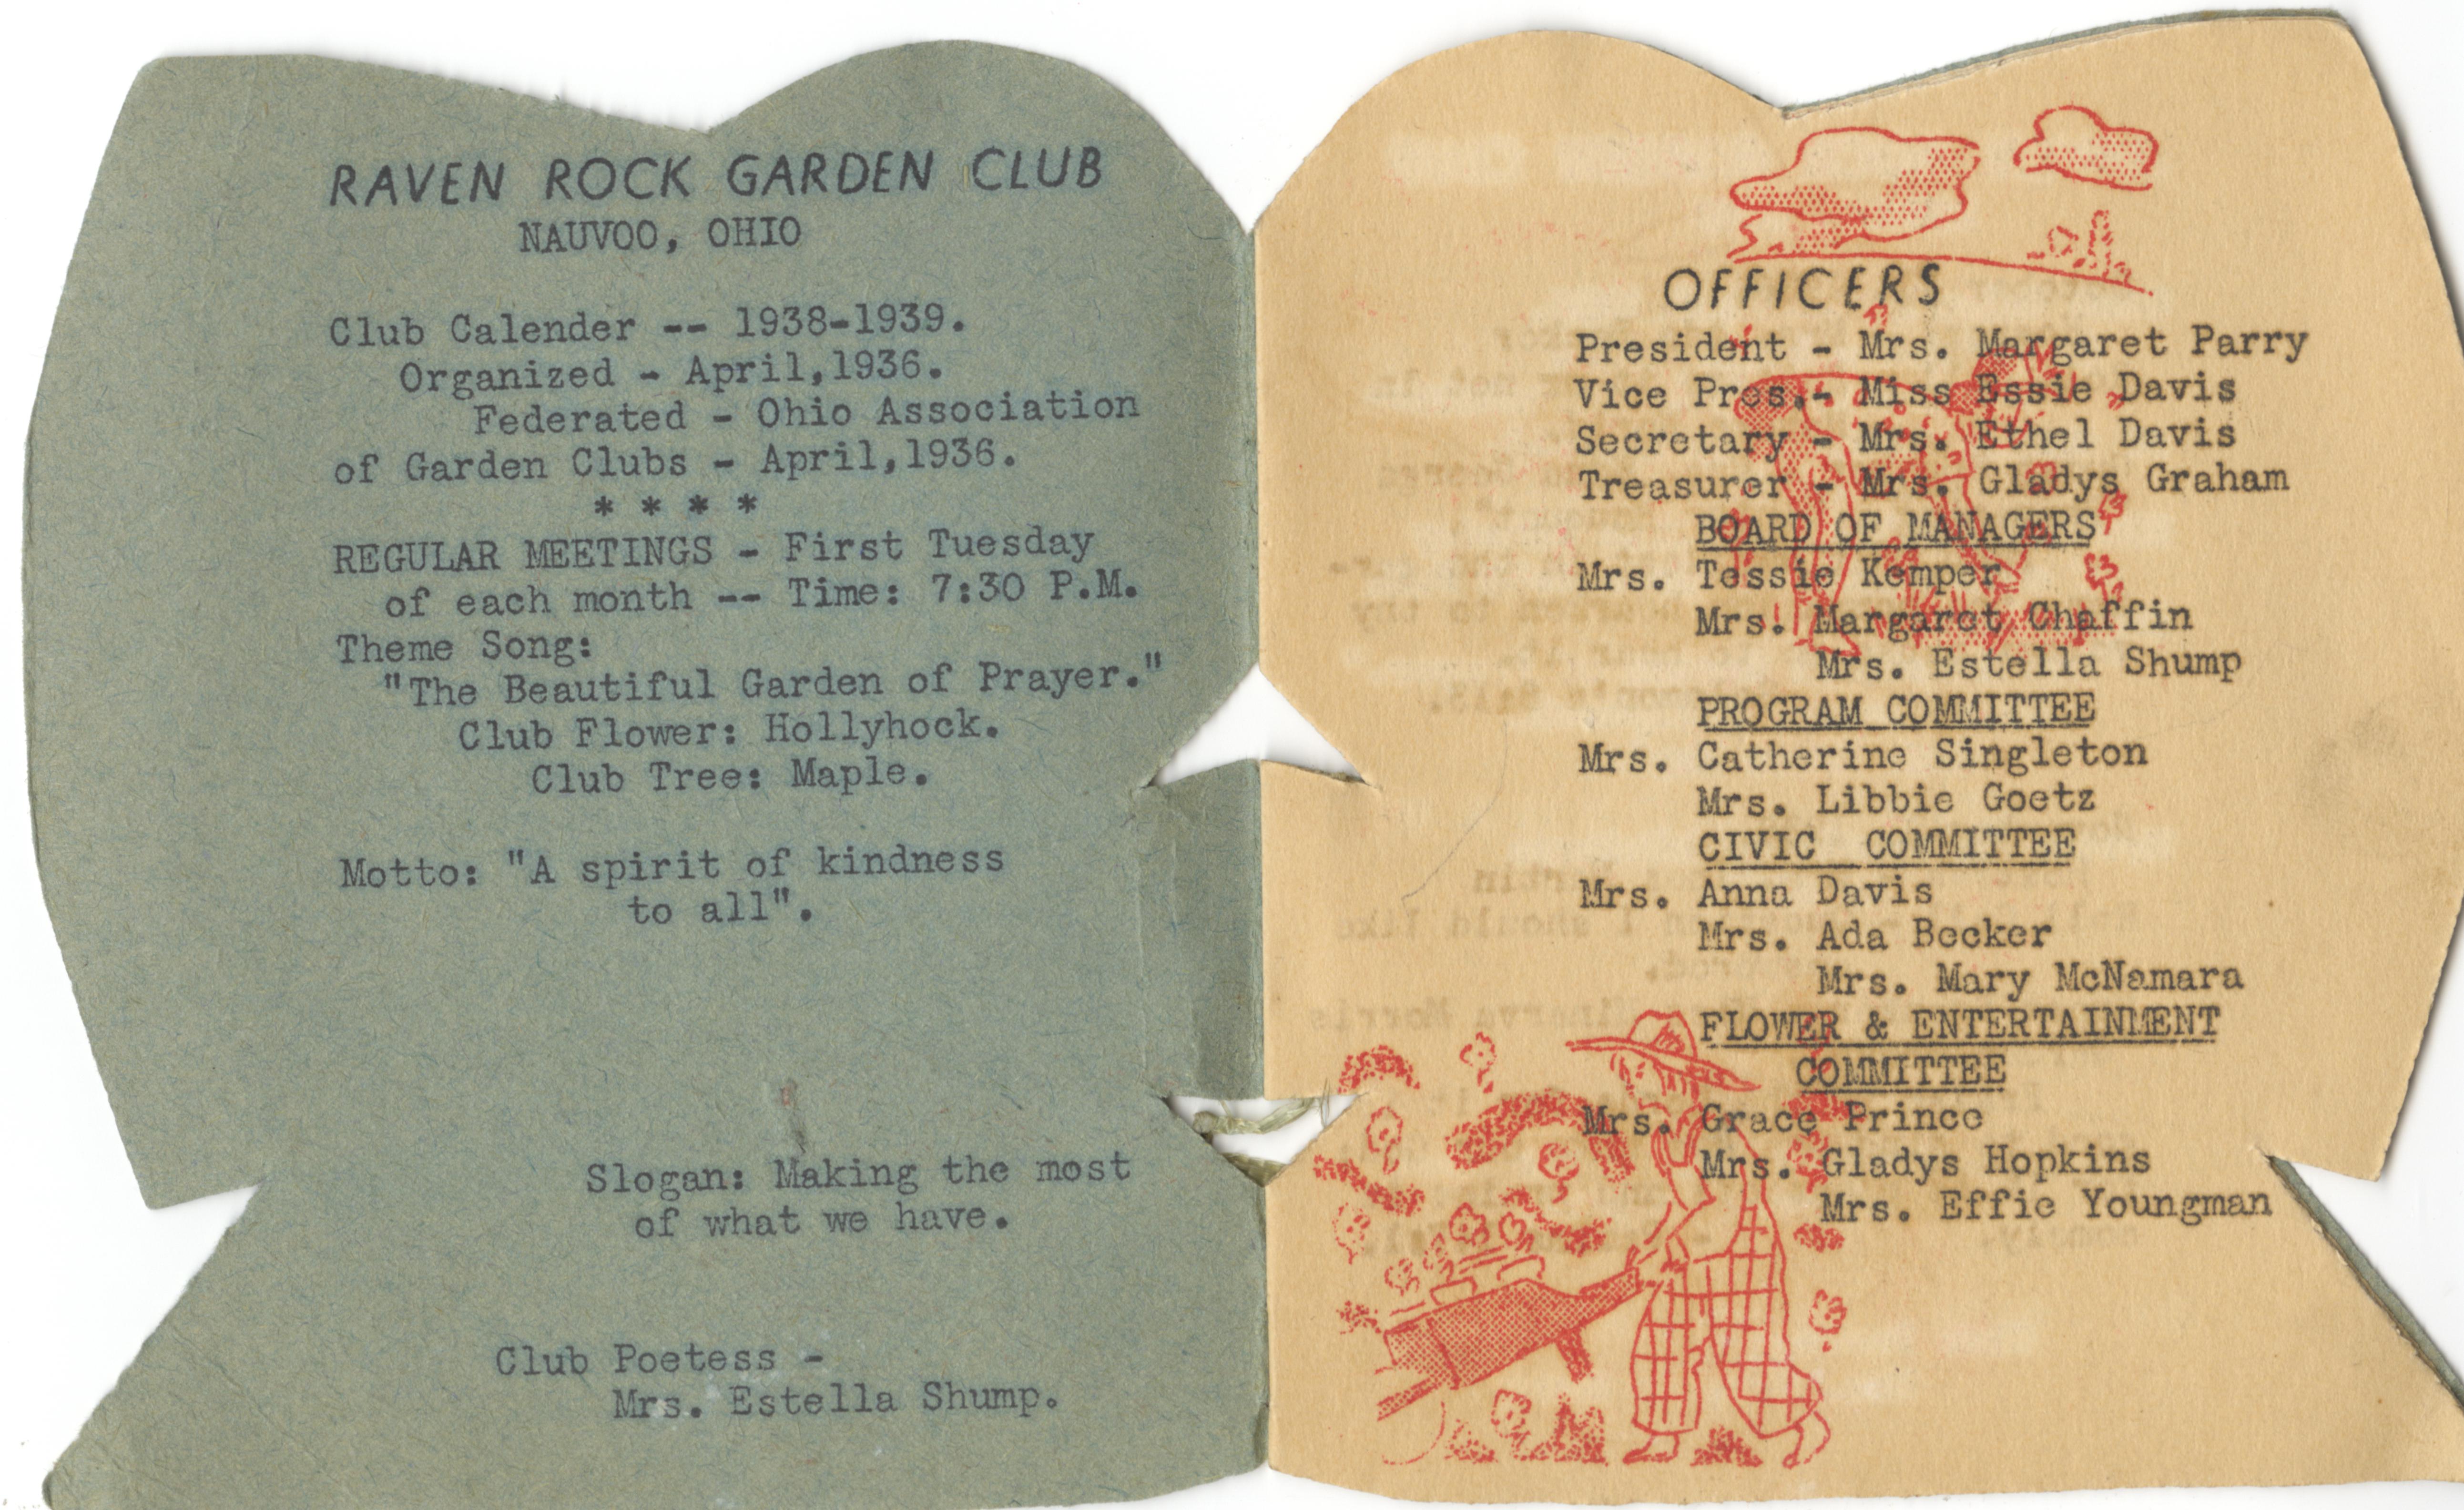 RAVEN ROCK GARDEN CLUB
NAUVOO, OHIO
Club Calender -- 1938-1939.
Organized - April,1936.
Federated - Ohio Association
of Garden Clubs - April,1936.
* * * *
REGULAR MEETINGS - First Tuesday
of each month -- Time: 7:30 P.M.
Theme Song:
"The Beautiful Garden of Prayer."
Club Flower: Hollyhock.
Club Tree: Maple.
Motto: "A spirit of kindness
to all".
Slogan: Making the most
of what we have.
Club Poetess -
Mrs. Estella Shump.
OFFICERS
President - Mrs. Margaret Parry
Vice Pres.- Miss Essie Davis
Secretary - Mrs. Ethel Davis
Treasurer - Mrs. Gladys Graham
BOARD OF MANAGERS
Mrs. Tessie Kemper
Mrs. Margaret Chaffin
Mrs. Estella Shump
PROGRAM COMMITTEE
Mrs. Catherine Singleton
Mrs. Libbie Goetz
CIVIC COMMITTEE
Mrs. Anna Davis
Mrs. Ada Becker
Mrs. Mary McNamara
FLOWER & ENTERTAINMENT
COMMITTEE
Mrs. Grace Prince
Mrs. Gladys Hopkins
Mrs. Effie Youngman